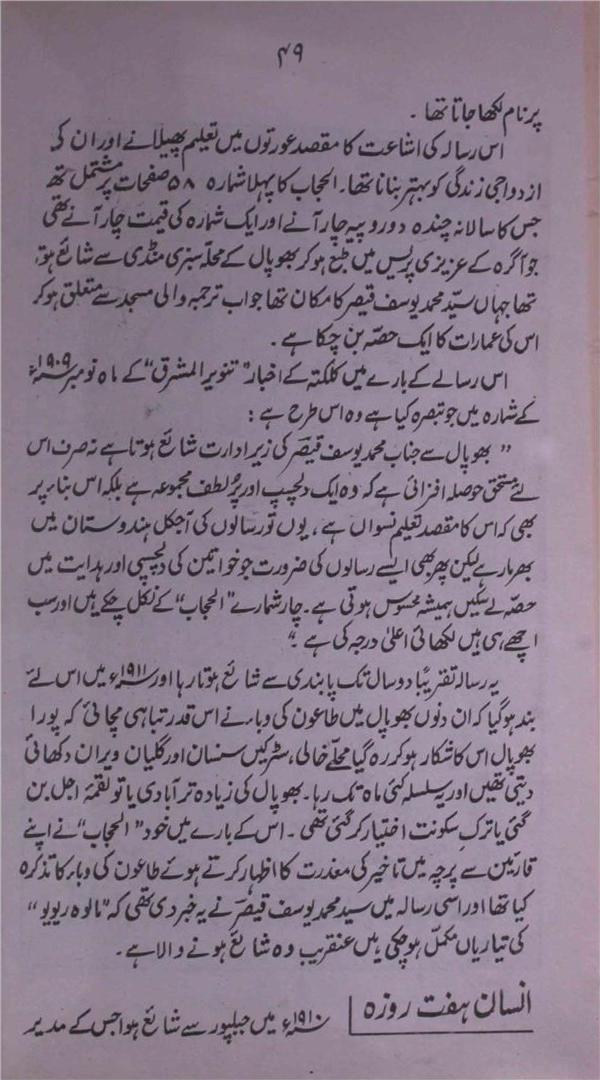 ۴۹
پر نام لکھا جاتا تھا ۔
اس رسالہ کی اشاعت کا مقصد عورتوں میں تعلیم پھیلانے اور ان کی
ازدواجی زندگی کو بہتر بنانا تھا۔ الحجاب کا پہلا شمارہ ۵۸ صفحات پر مشتمل تھا
جس کا سالانہ چندہ دو روپیہ چار آنے اور ایک شمارہ کی قیمت چار آنے تھی
جو آگرہ کے عزیزی پریس میں طبع ہو کر بھوپال کے محلہ سبزی منڈی سے شائع ہوتا
تھا جہاں سیّد محمد یوسف قیصر کا مکان تھا جو اب ترجمہ والی مسجد سے متعلق ہو کر
اس کی عمارات کا ایک حصّہ بن چکا ہے ۔
اس رسالے کے بارے میں کلکتہ کے اخبار "تنویر المشرق" کے ماہ نومبر ۱۹۰۹ء
کے شمارہ میں جو تبصرہ کیا ہے وہ اس طرح ہے :
" بھوپال سے جناب محمد یوسف قیصر کی زیر ادارت شائع ہوتا ہے نہ صرف اس
لئے مستحق حوصلہ افزائی ہے کہ وہ ایک دلچسپ اور پُر لطف مجموعہ ہے بلکہ اس بناء پر
بھی کہ اس کا مقصد تعلیم نسواں ہے ، یوں تو رسالوں کی آجکل ہندوستان میں
بھرمار ہے لیکن پھر بھی ایسے رسالوں کی ضرورت جو خواتین کی دلچسپی اور ہدایت میں
حصّہ لے سکیں ہمیشہ محسوس ہوتی ہے ۔ چار شمارے "الحجاب" کے نکل چکے ہیں اور سب
اچھے ہی ہیں لکھائی اعلیٰ درجہ کی ہے ۔"
یہ رسالہ تقریبًا دو سال تک پابندی سے شائع ہوتا رہا اور ۱۹۱۱ء میں اس لئے
بند ہو گیا کہ ان دنوں بھوپال میں طاعون کی وباء نے اس قدر تباہی مچائی کہ پورا
بھوپال اس کا شکار ہو کر رہ گیا محلّے خالی ، سڑکیں سنسان اور گلیاں ویران دکھائی
دیتی تھیں اور یہ سلسلہ کئی ماہ تک رہا۔ بھوپال کی زیادہ تر آبادی یا تو لقمۂ اجل بن
گئی یا ترک سکونت اختیار کر گئی تھی ۔ اس کے بارے میں خود "الحجاب" نے اپنے
قارئین سے پرچہ میں تاخیر کی معذرت کا اظہار کرتے ہوئے طاعون کی وباء کا تذکرہ
کیا تھا اور اسی رسالہ میں سید محمد یوسف قیصر نے یہ خبر دی تھی کہ "مالوہ ریویو"
کی تیاریاں مکمل ہو چکی ہیں عنقریب وہ شائع ہونے والا ہے ۔
انسان ہفت روزہ
۱۹۱۰ء میں جبلپور سے شائع ہوا جس کے مدیر